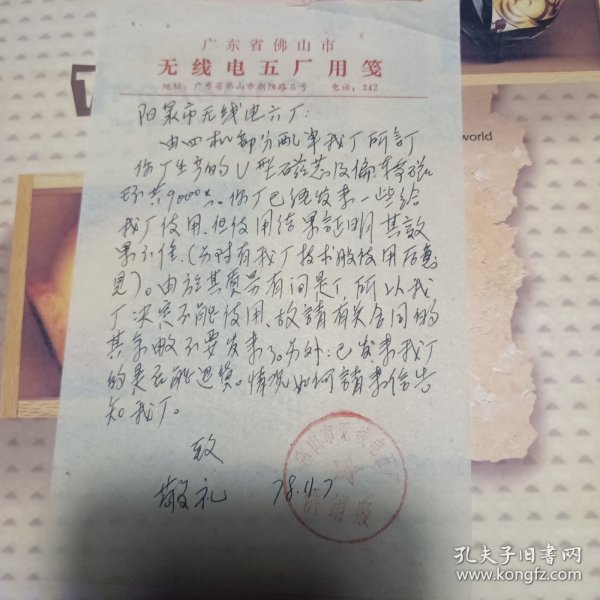 广东省佛山市
无线电五厂用笺
地址：广东省佛山市朝阳路5号 电话：342
阳泉市无线电六厂：
由四机部分配单我厂所訂
你厂生产的U型磁芯及偏轉磁
环共9000只。你厂已经发来一些给
我厂使用，但使用结果証明其效
果不佳，（另附有我厂技术股使用后意
見）。由於其质量有问题，所以我
厂决定不能使用、故請有关合同的
其余数不要发来了。另外：已发来我厂
的是否能退货。情况如何請来信告
知我厂。
致
敬礼 78.11.7
佛山市无线电五厂
供销股
world
孔夫子旧书网
www.kongfz.com